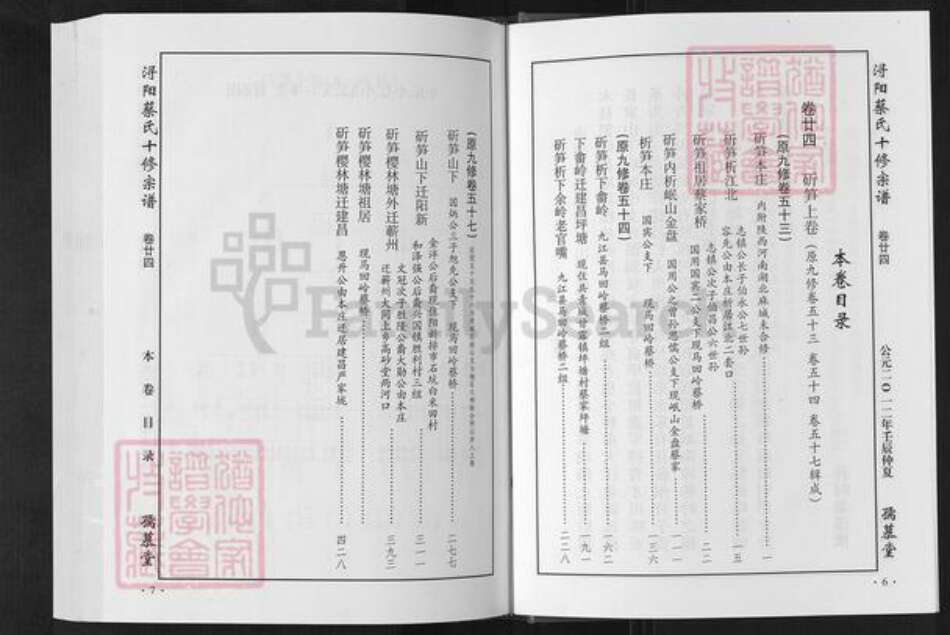 浔阳蔡氏十修宗谱
卷廿四
公元二〇一二年壬辰仲夏
孺慕堂
·6·
本卷目录
卷廿四 斫笋上卷（原九修卷五十三 卷五十四 卷五十七辑成）
（原九修卷五十三）
斫笋本庄 内附陕西河南湖北麻城未合修 一
斫笋析江北 志镇公长子伯永公七世孙
容先公由本庄析居江北二套口 一五
斫笋祖居蔡家桥 志镇公次子伯昌公六世孙
国用国宾二公支下现马回岭蔡桥 二二
斫笋内析岷山金盘 国用公之曾孙思慎公支下现岷山金盘蔡家 一一一
析笋本庄 国宾公支下 现马回岭蔡桥 一三六
（原九修卷五十四）
斫笋析下畲岭 九江县马回岭蔡桥二组 一六二
下畲岭迁建昌坪塘 现住共青城甘露镇坪塘村蔡家坪塘 一九一
斫笋析下余岭老官嘴 九江县马回岭蔡桥二组 二二八
（原九修卷五十七）
斫笋山下 国炳公三子旭先公支下 现马回岭蔡桥 二七七
斫笋山下迁阳新 金洋公后裔现住阳新排市石坑白米田村
和泽强公后裔兴国镇胜利村三组 三一一
斫笋樱林塘外迁蕲州 文冠次子胜隆公裔大勋公由本庄
迁蕲州大同上乡高砂堂两河口 三九三
斫笋樱林塘祖居 现马回岭蔡桥
斫笋樱林塘迁建昌 恩升公由本庄迁居建昌严家垅 四二八
浔阳蔡氏十修宗谱
卷廿四
本卷目录
孺慕堂
·7·
FamilySearch